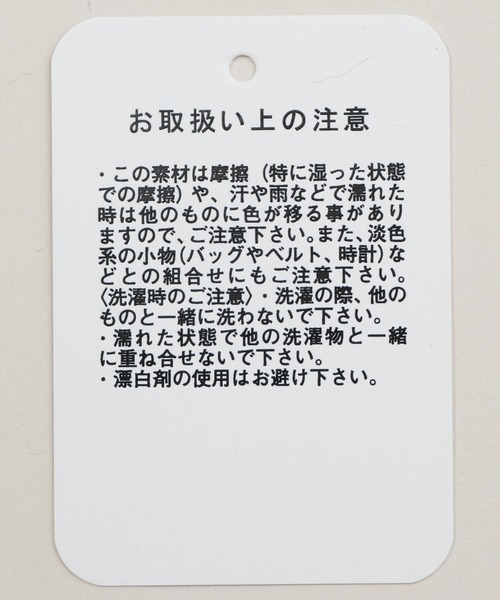 お取扱い上の注意
・この素材は摩擦（特に湿った状態
での摩擦）や、汗や雨などで濡れた
時は他のものに色が移る事があり
ますので、ご注意下さい。また、淡色
系の小物（バッグやベルト、時計）な
どとの組合せにもご注意下さい。
〈洗濯時のご注意〉・洗濯の際、他の
ものと一緒に洗わないで下さい。
・濡れた状態で他の洗濯物と一緒
に重ね合せないで下さい。
・漂白剤の使用はお避け下さい。